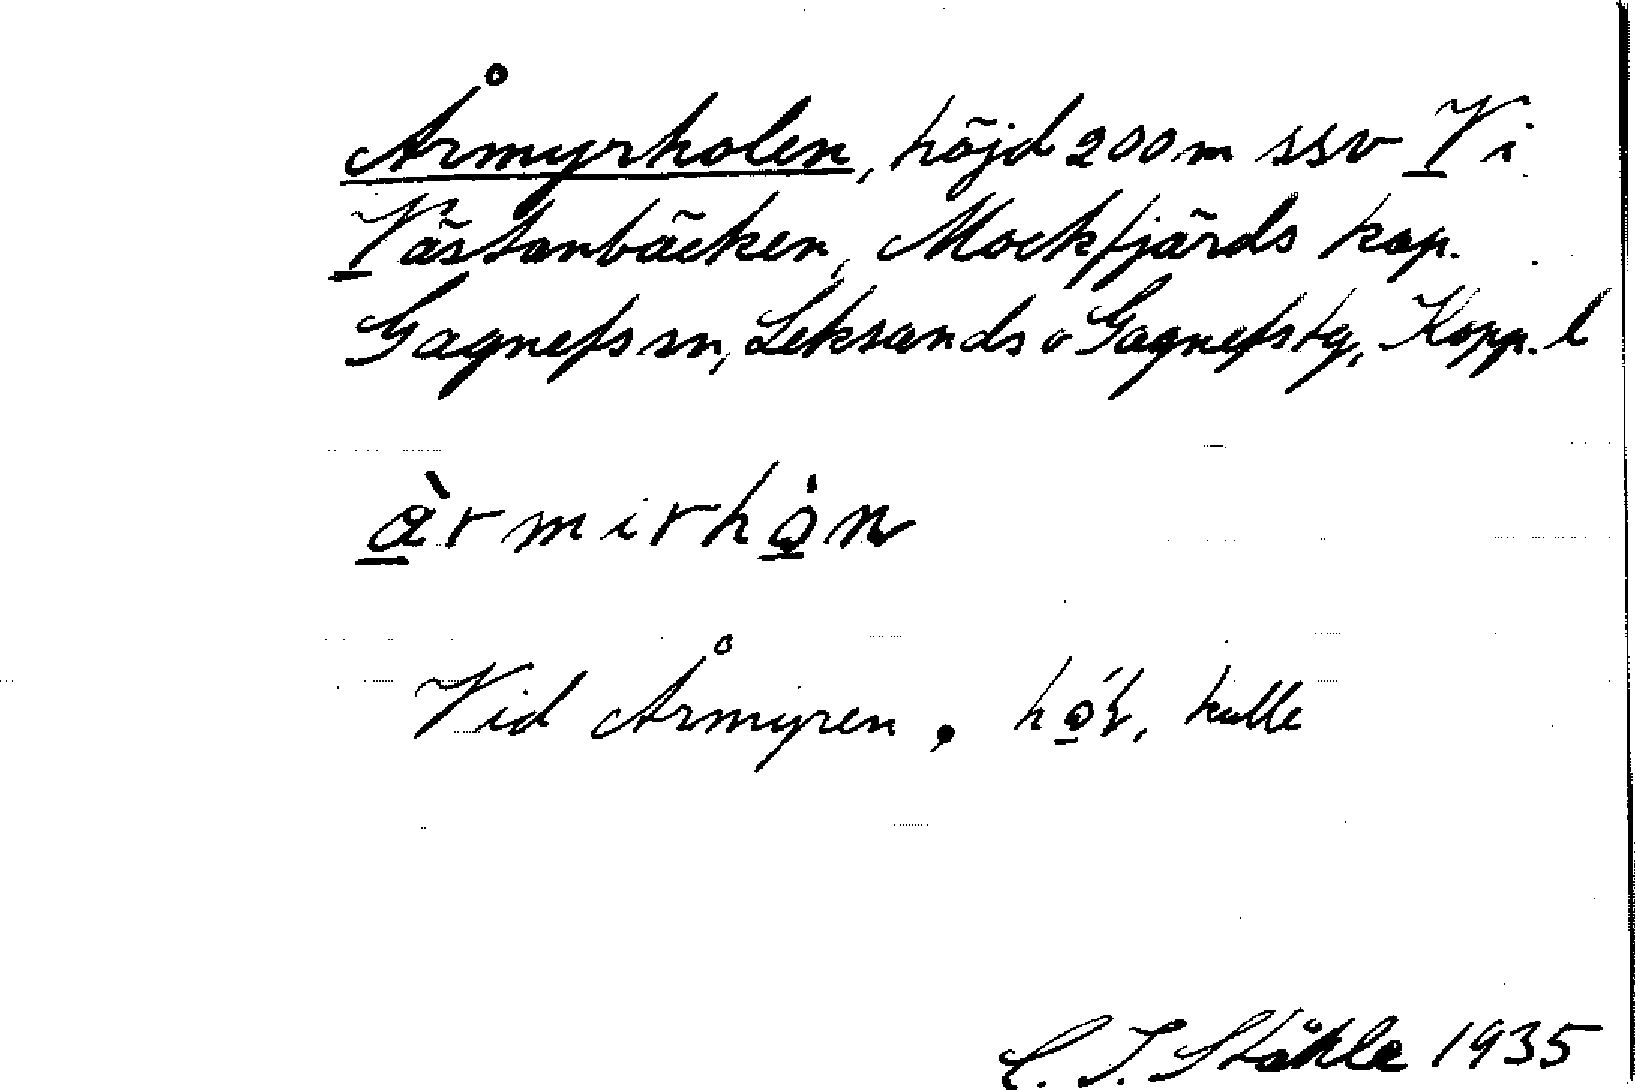 Årmyrholen, höjd 200 m ssv V i
Västanbäcken, Mockfjärds kap.
Gagnefs sn, Leksands o Gagnefs tg, Kopp. l
àrmirhòn
Vid Årmyren. hó̱ɫ, kulle
C. I. Ståhle 1935